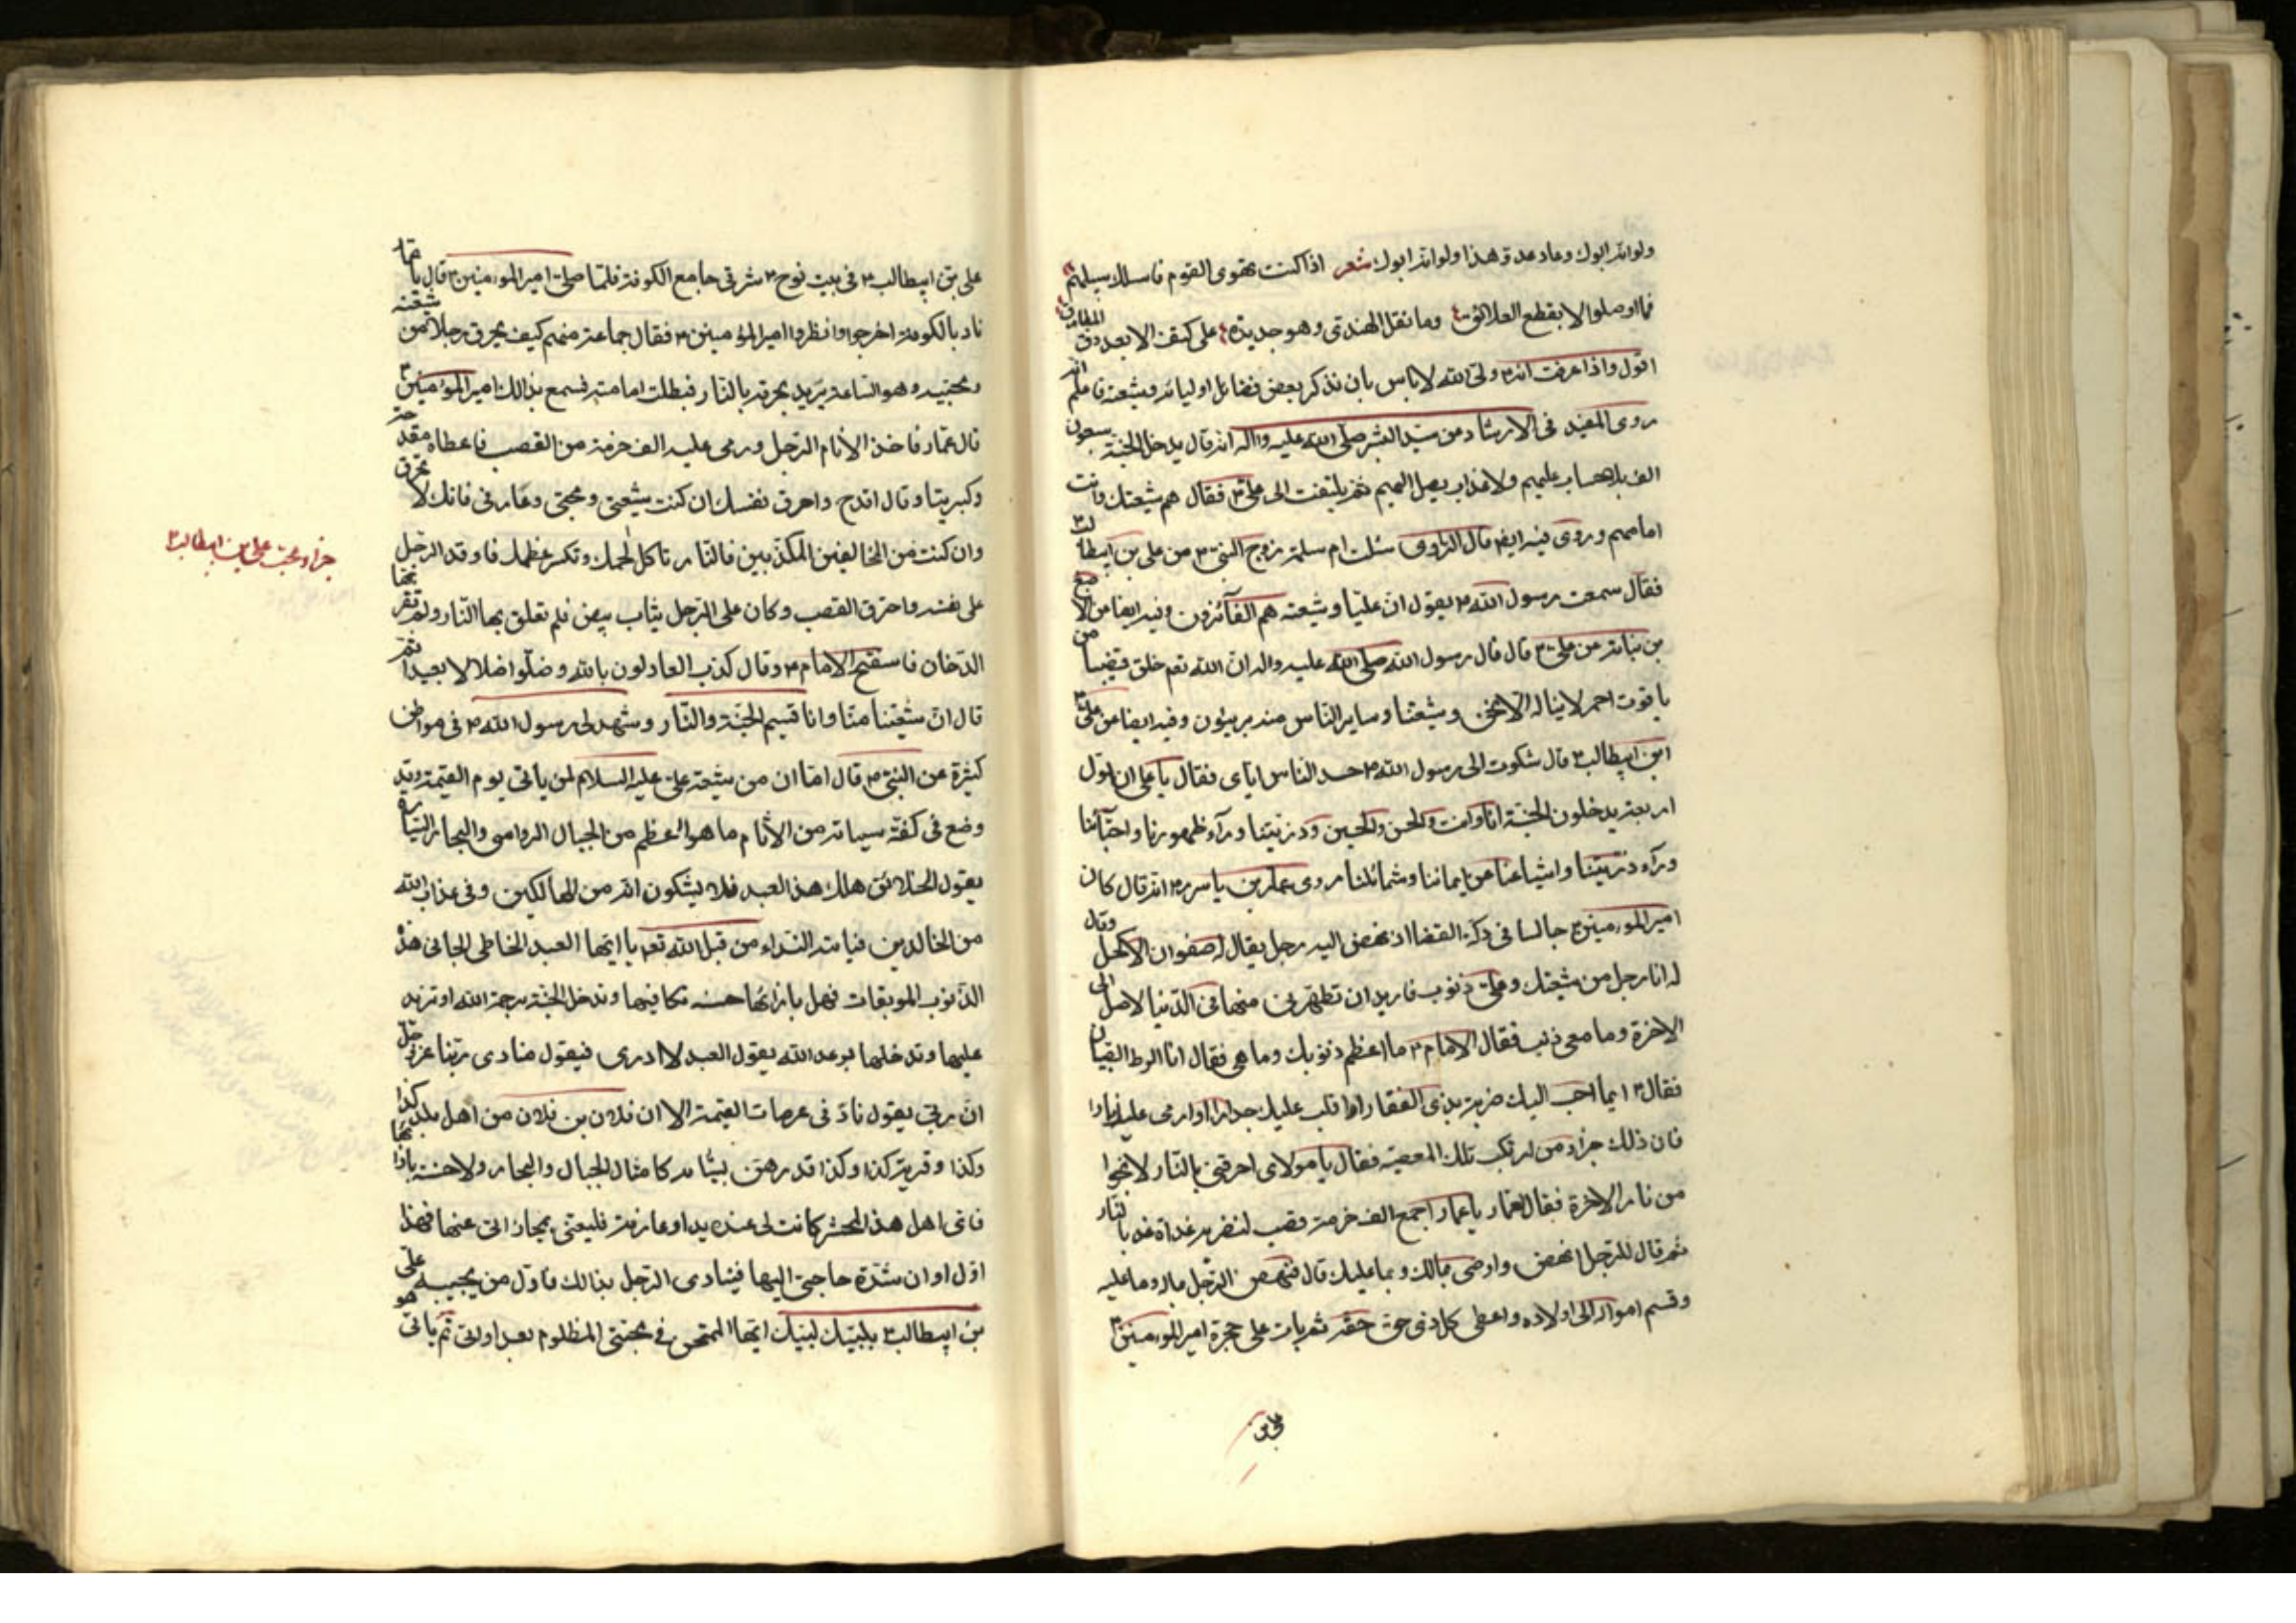 ولوانه ابوك وعاد عدوّ هذا ولوانه ابوك شعر اذا كنت تهوى القوم فاسلك سبيلهم
فما وصلوا الا بقطع العلائق وما نقل الهندى وهو جديدة على كتف الا بعد دق المطارق
اقول واذا عرفت انه م ولى الله لا باس بان نذكر بعض فضائل اوليائه وشيعته فاعلم انه
روى المفيد فى الارشاد من سيد البشر صلى الله عليه واله انه قال يدخل الجنة سبعون
الف بلا حساب عليهم ولا عذاب يصل اليهم ثم يلتفت الى على ع فقال هم شيعتك وانت
امامهم وروى فيه ايضا قال الراوى سئلت ام سلمة زوج النبى م من على بن ابيطالب ع
فقال سمعت رسول الله م يقول ان عليا وشيعته هم الفآئزون وفيه ايضا من الاصبغ
بن نباته من على ع قال قال رسول الله صلى الله عليه واله ان الله تعم خلق قضيبا من
ياقوت احمر لا يناله الا نحن وشيعتنا وساير الناس منه بريئون وفيه ايضا من على
ابن ابيطالب ع قال شكوت الى رسول الله م حسد الناس اياى فقال يا على ان اول
اربعة يدخلون الجنة انا وانت والحسن والحسين وذريتنا ورآء ظهورنا واحبآئنا
ورآء ذريتنا واشياعنا من ايماننا وشمائلنا روى عمار بن ياسر م انه قال كان
امير المؤمنين ع جالسا فى دكة القضا اذ نهض اليه رجل يقال له صفوان الاكحل وقال
له انا رجل من شيعتك وعلى ذنوب فاريد ان تطهرنى منها فى الدنيا لاصل الى
الاخرة وما معى ذنب فقال الامام م ما اعظم ذنوبك وما هى فقال انا الوط الصبيان
فقال م ايما احب اليك ضربة بذى الفقار او اقلب عليك جدارا او ارمى عليك نارا
فان ذلك جزاء من ارتكب تلك المعصية فقال يا مولاى احرقنى بالنار لانجوا
من نار الاخرة فقال لعمار يا عمار اجمع الف حزمة قصب لنضرمه غداة غد بالنار
ثم قال للرجل انهض واوصى بمالك وبما عليك قال فنهض الرجل ماله وما عليه
وقسم امواله الى اولاده واعطى كل ذى حق حقه ثم بات على حجرة امير المؤمنين ع
على بن
على بن ابيطالب ع فى بيت نوح ع شرقى جامع الكوفة فلما صلى امير المؤمنين ع قال يا عمار
ناد بالكوفة اخرجوا وانظروا امير المؤمنين م فقال جماعة منهم كيف يحرق رجلا من شيعته
ومحبيه وهو الساعة يريد يحرقه بالنار فبطلت امامته فسمع بذالك امير المؤمنين ع
قال عمار فاخذ الامام الرجل ورمى عليه الف حزمة من القصب فاعطاه مقدحة
وكبريتا وقال اقدح واحرق نفسك ان كنت شيعتى ومحبى وعارفى فانك لا تحرق
وان كنت من المخالفين المكذبين فالنار تاكل لحمك وتكسر عظمك فاوقد الرجل
على نفسه واحترق القصب وكان على الرجل ثياب بيض فلم تعلق بها النار ولم تقربها
الدخان فاستفتح الامام م وقال كذب العادلون بالله وضلوا ضلالا بعيدا ثم
قال ان شيعتنا منا وانا قسيم الجنة والنار وشهد لى رسول الله م فى مواطن
كثيرة عن النبى م قال اما ان من شيعة على عليه السلام لمن ياتى يوم القيمة وقد
وضع فى كفة سيئاته من الاثام ما هو اعظم من الجبال الرواسى والبحار السيارة
يقول الخلائق هلك هذ العبد فلا يشكون انه من الهالكين وفى عذاب الله
من الخالدين فياته النداء من قبل الله تعم يا ايها العبد الخاطى الجانى هذه
الذنوب الموبقات فهل بازائها حسنة تكافيها وتدخل الجنة برحمة الله او تزيد
عليها وتدخلها بوعد الله يقول العبد لا ادرى فيقول منادى ربنا عز وجل
ان ربى يقول ناد فى عرصات القيمة الا ان فلان بن فلان من اهل بلد كذا
وكذا وقرية كذا وكذا قد رهن بسيئاته كامثال الجبال والبحار ولا حسنة بازائها
فاى اهل هذ المحشر كانت لى عنده يد او عارفة فليغثنى بمجازاتى عنها فهذا
اول اوان شدة حاجتى اليها فينادى الرجل بذالك فاول من يجيبه على
بن ابيطالب ع بلبيك لبيك ايها الممتحن فى محبتى المظلوم بعداوتى ثم ياتى هو
جزاء محب على بن ابيطالب ع